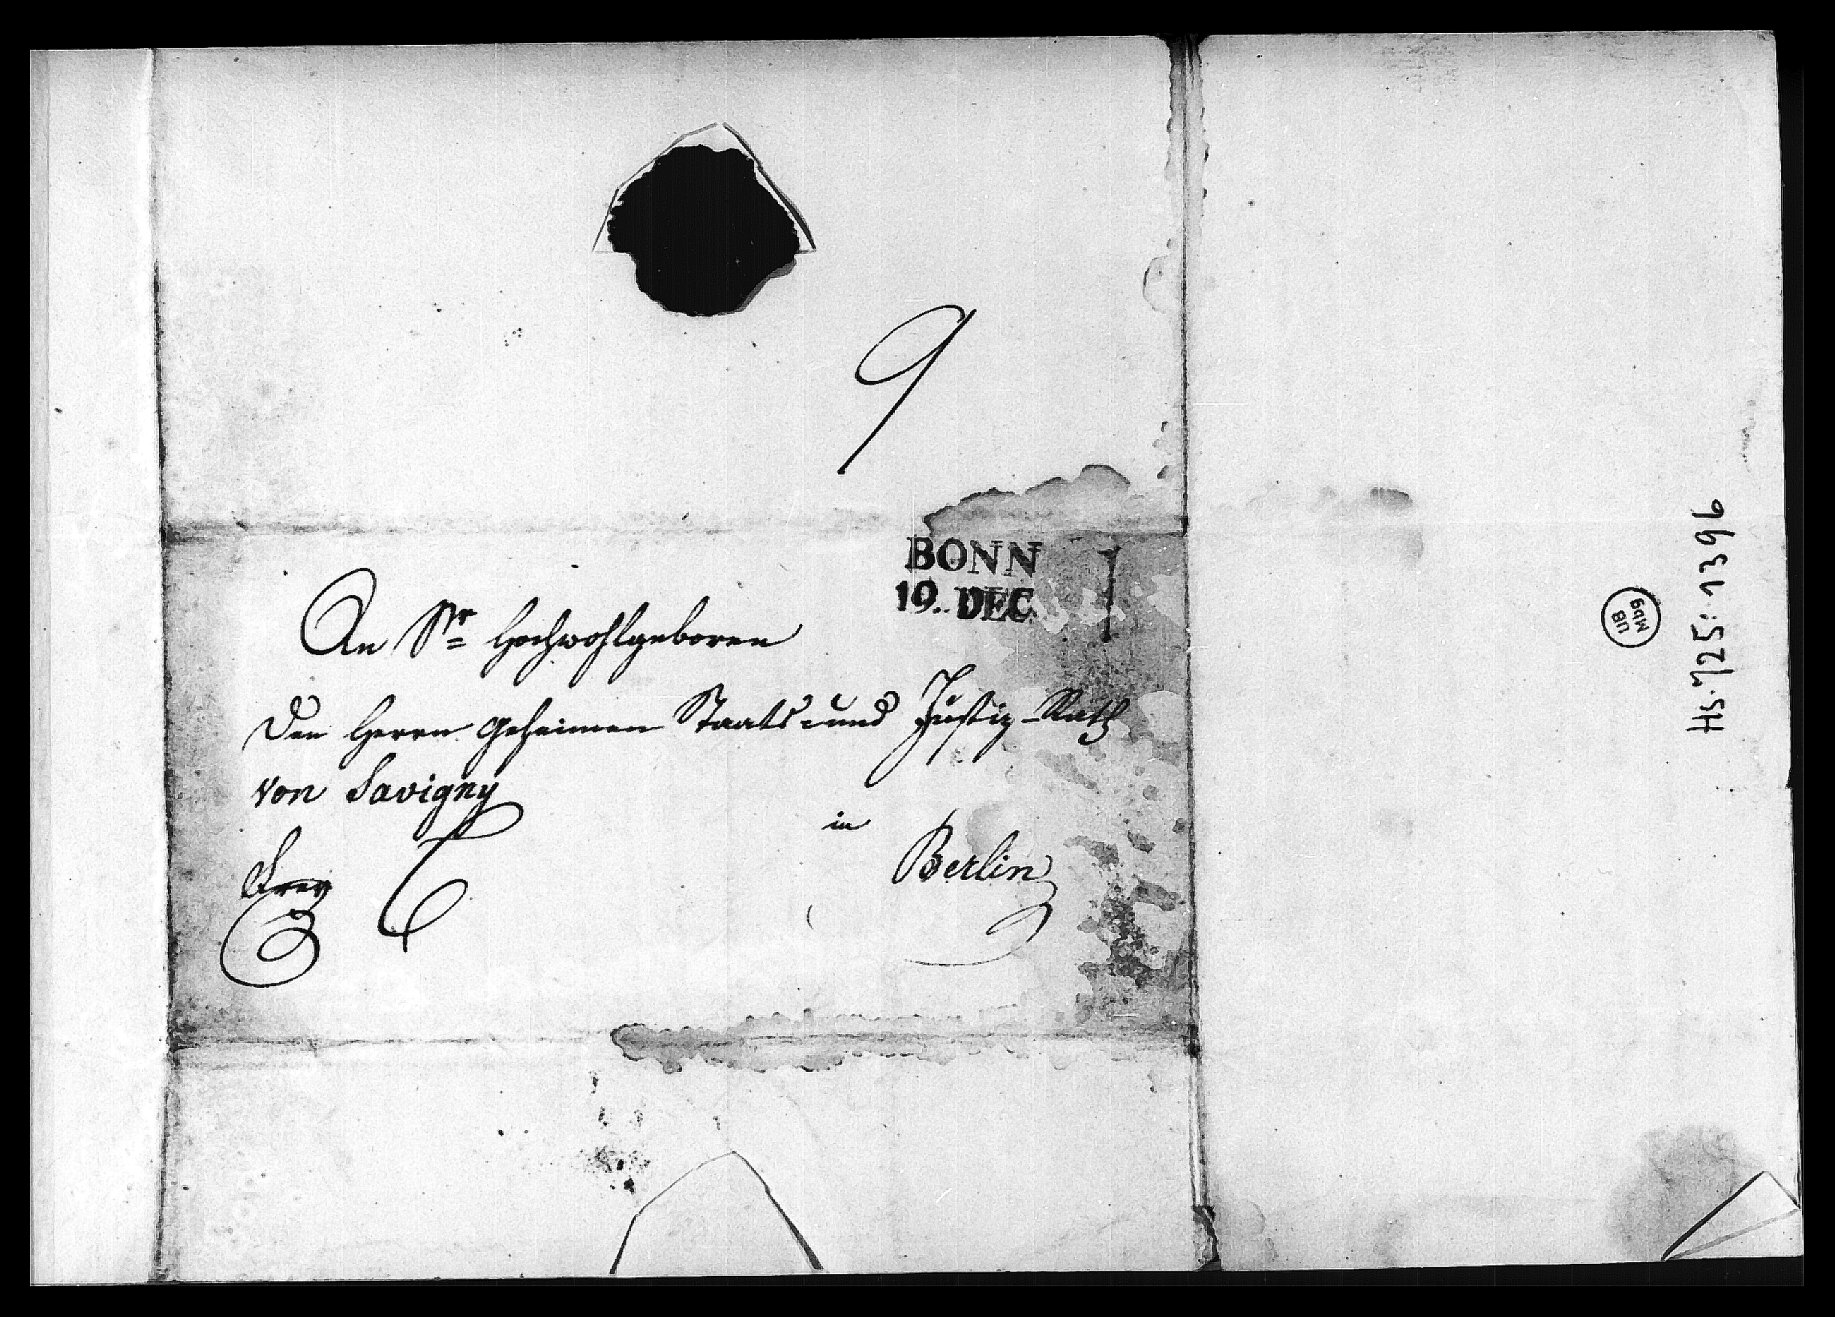 9
BONN
19. DEC
An Sr Hochwohlgeboren
den Herrn Geheimen Staats- und Justiz-Rath
von Savigny
in
Berlin
frey
UB
Mbg
Hs. 725:1396